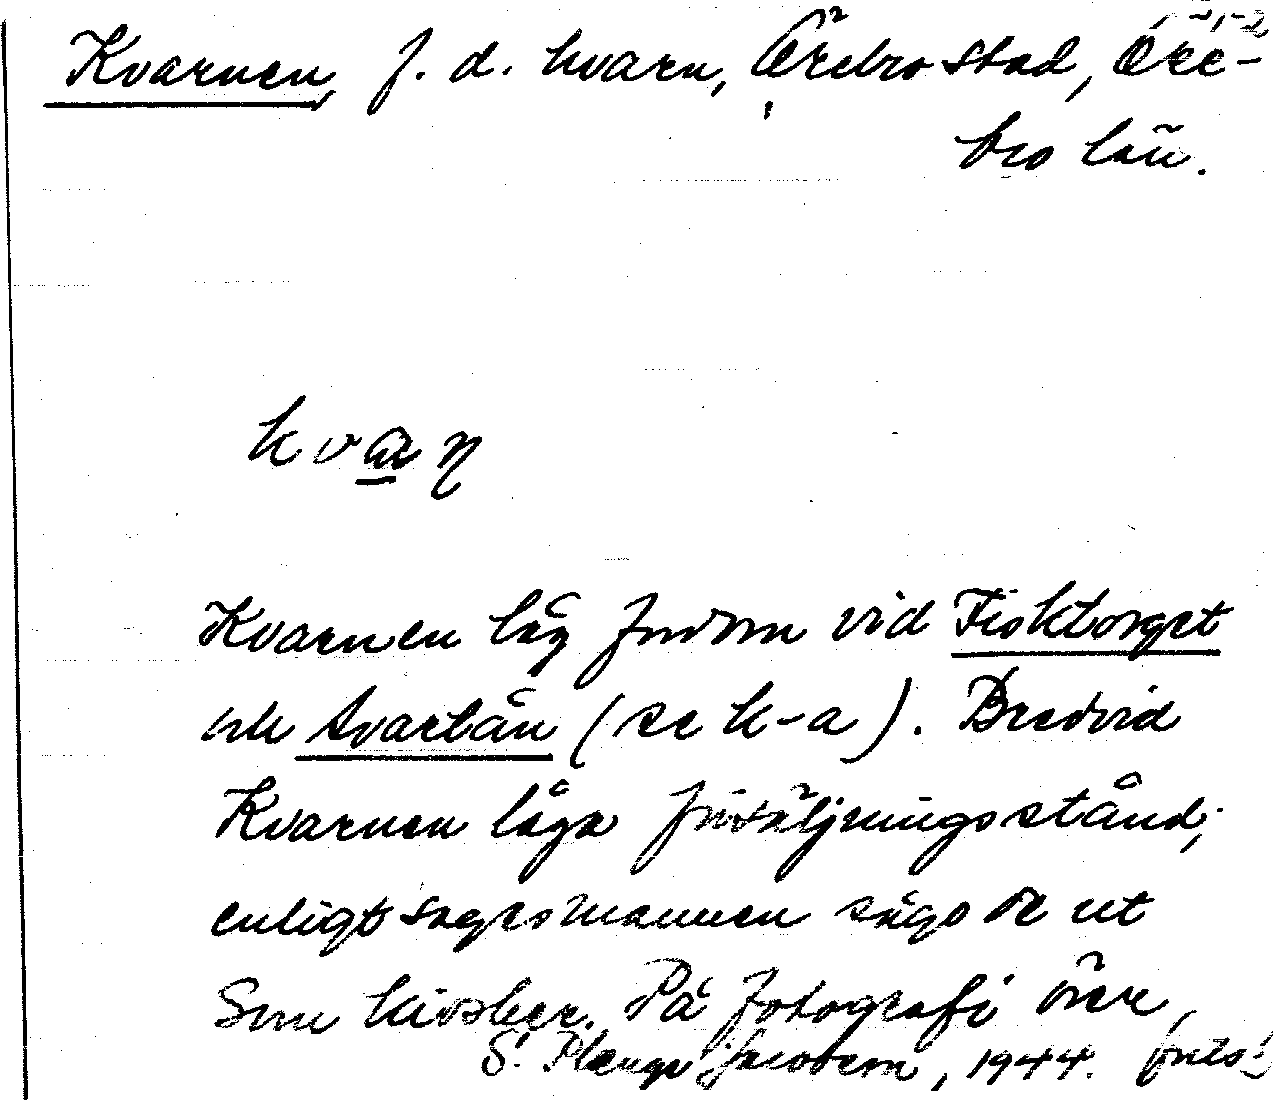 Kvarnen, f. d. kvarn, Örebro stad, Öre-
bro län.
kvaɳ
Kvarnen låg förr vid Fisktorget
vid Svartån (se k-a). Bredvid
Kvarnen låga försäljningsstånd;
enligt sagesmannen sågo de ut
som kiosker. På fotografi över,
S. Plange Jacobson, 1944. forts!